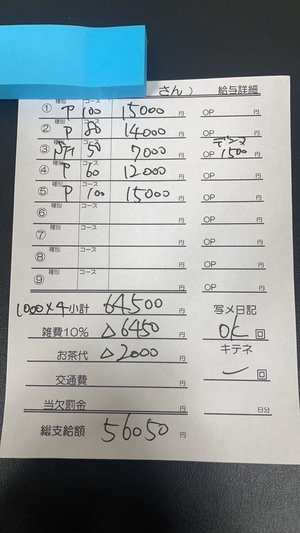 さん） 給与詳細
① 種別 P コース 100 15000 円 OP 円
② 種別 P コース 80 14000 円 OP 円
③ 種別 コース 50 7000 円 OP デンマ 1500 円
④ 種別 P コース 60 12000 円 OP 円
⑤ 種別 P コース 100 15000 円 OP 円
⑥ 種別 コース 円 OP 円
⑦ 種別 コース 円 OP 円
⑧ 種別 コース 円 OP 円
⑨ 種別 コース 円 OP 円
1,000×4 小計 64,500 円 写メ日記
雑費10% △6450 円 OK 回
お茶代 △2000 円 キテネ
交通費 円 回
当欠罰金 円 日分
総支給額 56050 円